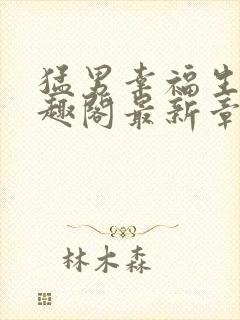 猛男幸福生
趣阁最新章
林木森